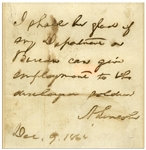 I shall be glad if
any Department or
Bureau can give
employment to this
discharged soldier
A. Lincoln
Dec. 9. 186